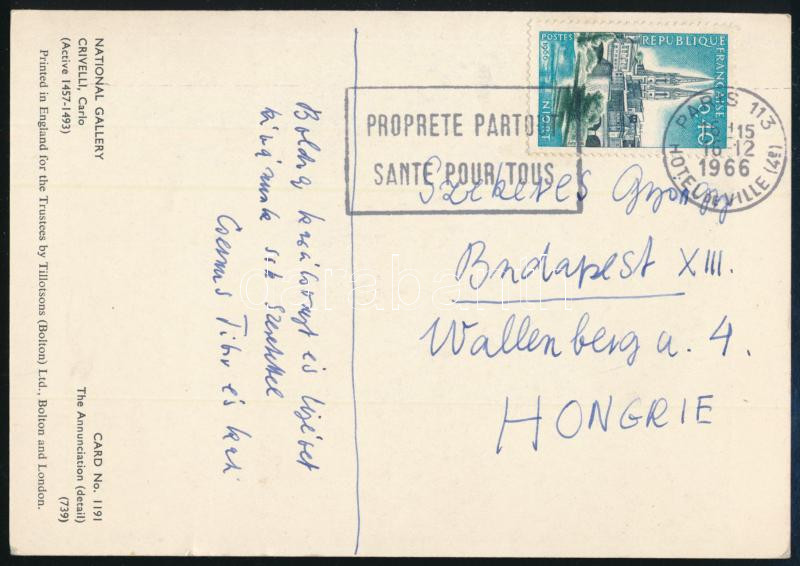 NATIONAL GALLERY
CRIVELLI, Carlo
(Active 1457-1493)
CARD No. 1191
The Annunciation (detail)
(739)
Printed in England for the Trustees by Tillotsons (Bolton) Ltd., Bolton and London.
Boldog karácsonyt és újévet
kívánunk sok szeretettel
Csernus Tibor és Kati
POSTES
RÉPUBLIQUE FRANÇAISE
NIORT
0,40
PROPRETE PARTOUT
SANTE POUR TOUS
PARIS 113
15
16-12
1966
HOTEL DE VILLE (4E)
Szekeres György
Budapest XIII.
Wallenberg u. 4.
HONGRIE
darabanth